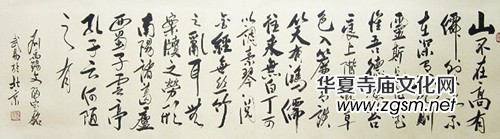 山不在高有
仙則名水不
在深有龍則
靈斯是陋室
惟吾德馨苔
痕上階綠草
色入簾青談
笑有鴻儒
往來無白丁可
以調素琴閱
金經無絲竹
之亂耳無
案牘之勞形
南陽諸葛廬
西蜀子雲亭
孔子云何陋
之有
劉禹錫文陋室銘
於北京
华夏寺庙文化网
www.zgsm.net